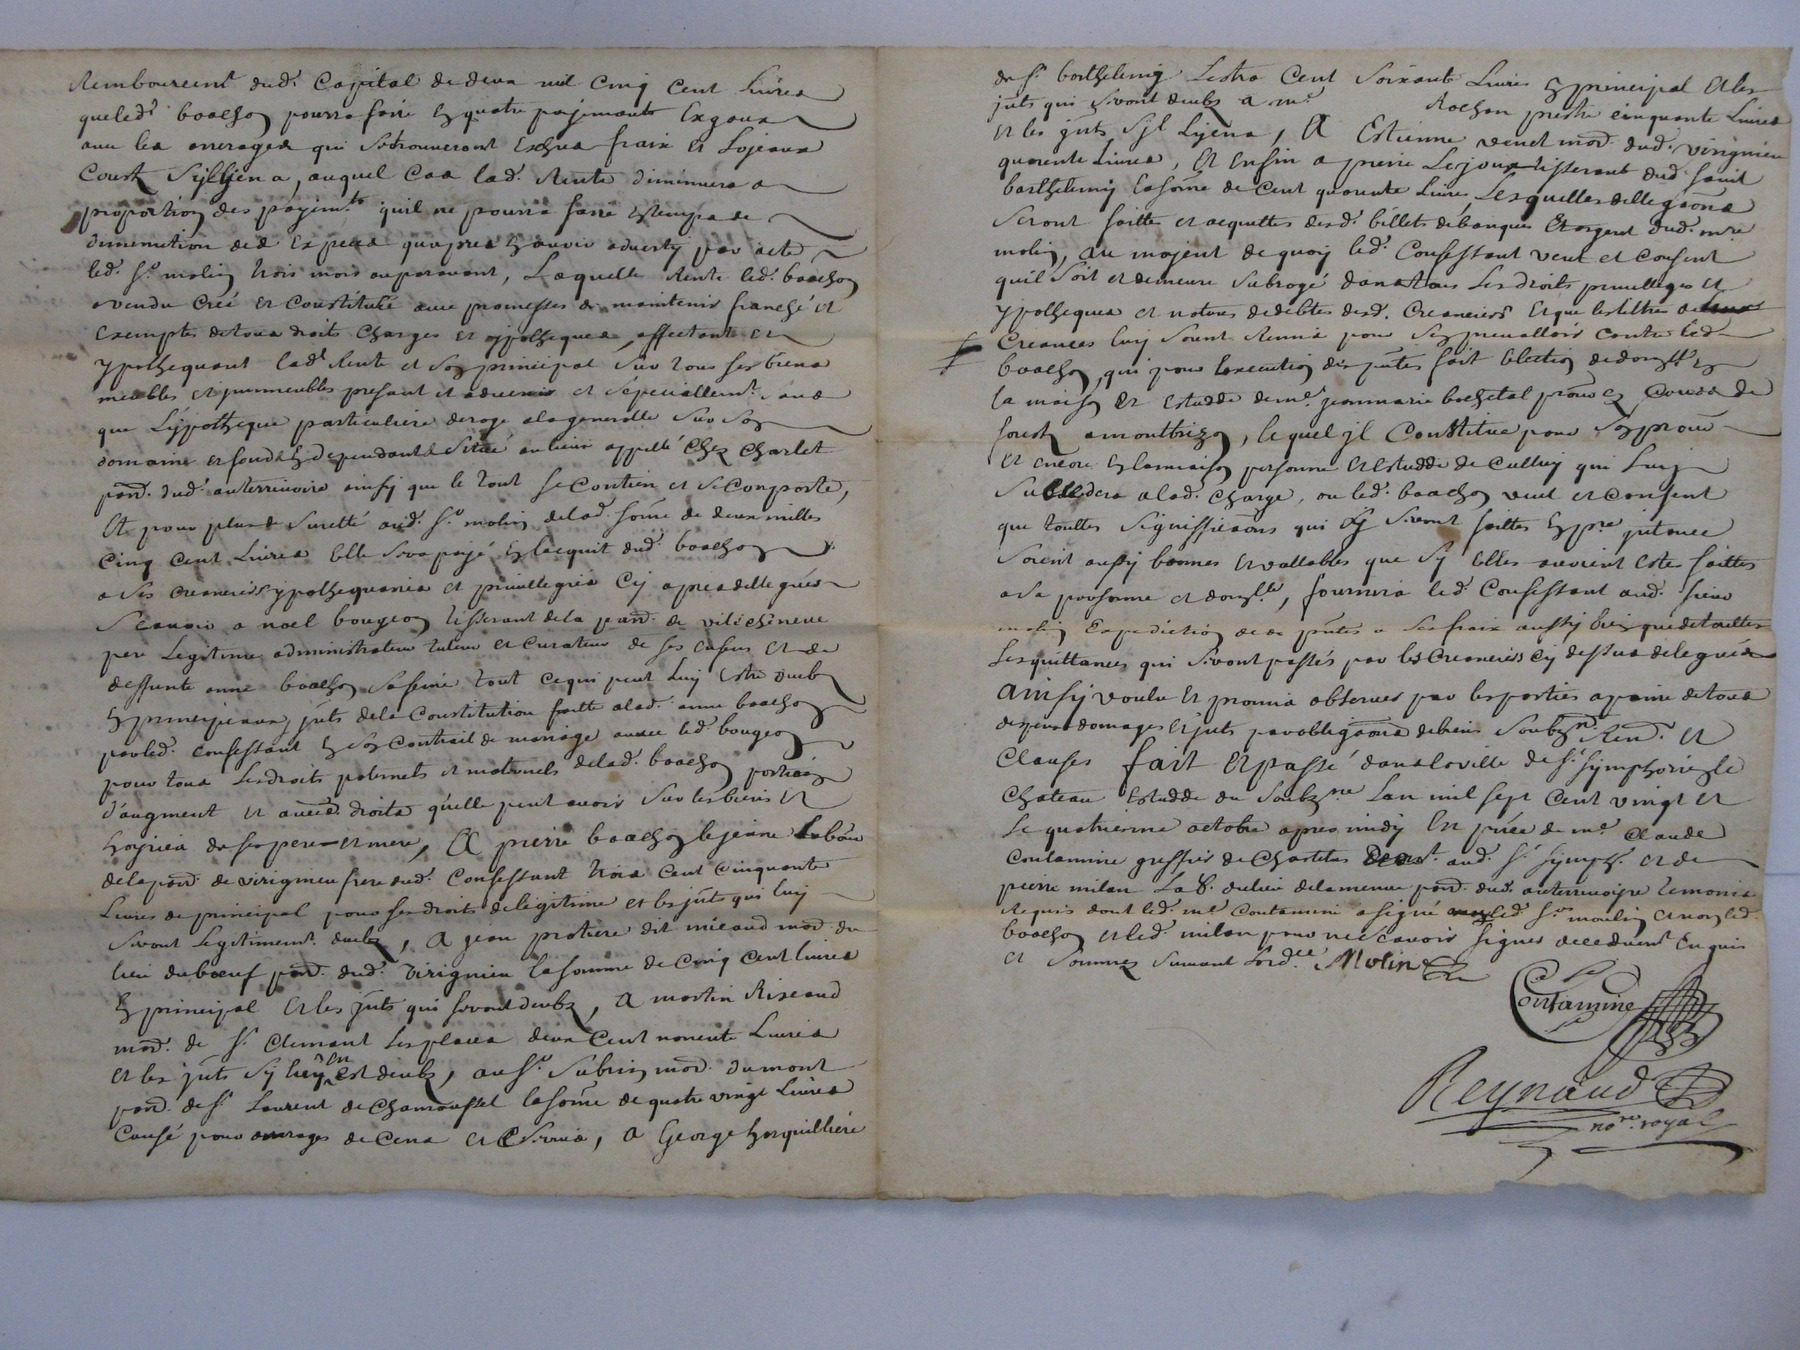 Remboursemt dudt Capital de deux mil Cinq Cent Livres
queledt boachon pourra faire en quatre payements Exgaux
avec les arrerages qui Setrouveront Escheus fraix et Lojeaux
Coust Sylyen a, auquel Cas ladt Rente diminuera a
proportion des payemts quil ne pourra faire en temps de
diminution des Especes quapres en avoir adverty par acte
ledt Sr molin trois mois auparavant, Laquelle Rente ledt boachon
a vendu Creé et Constitueé avec promesses de maintenir franche et
Exempte detous droits Charges et ypotheques, affectant et
ypothequant ladt Rente et Son principal Sur tous ses biens
meubles et immeubles presant et advenir et Specialement Sans
que Lypotheque particuliere deroge alagenerelle Sur Son
domaine et fonds en dependants Situé aulieu appellé Chez Charlet
parr. dudt anterrieuvire ainsy que le tout Se Contien et Se Comporte,
Et pour plus de Suretté audt Sr molin delad some de deux milles
Cinq Cent Livres Elle Sera payé en lacquit dudt boachon
a Ses Creanciers ypothequaires et privillegiés Cy apres dellegués
Scavoir a noel bougeon tisserant dela parr. de villecheneve
pere Legitime administrateur tuteur et Curateur de ses Enfens et de
deffunte anne boachon Safeme tout Cequi peut Luy Estre deub
en principeaux, jnts dela Constitution faitte alad. anne boachon
parled. Confessant en Son Contrait de mariage avec led. bougeon
pour tous Sesdroits paternels et maternels delad. boachon portion
d'augment et autres droits quelle peut avoir Sur lesbiens et
hoyries de ses pere et mere, A pierre boachon lejeune Labour
delaparr. de virigneu frere dudt Confessant trois Cent Cinquante
Livres de principal pour ses droits delegitime et les jnts qui luy
Seront Legitiment deubs, A jean protiere dit micaud mard. du
lieu duboeuf parr. dud. virignieu lasomme de Cinq Cent livres
en principal et les jnts qui seront deubs, A martin Riseaud
mard. de St Clemant Les places deux Cent nonente Livres
et les jnts Sy luy en Est deubs, au Sr Subrin mard. dumont
parr. de St Laurent de Chamousset lasome de quatre vingt Livres
Causé pour ouvrages de Cens et Servis, A George
de St barthelemy Lestra Cent Soixante Livres en principal et les
jnts qui Seront deubs a mre Rochon prestre Cinquante Livres
et les jnts Syl Lyena, A Estienne venet mard. dud. virignieu
quarente Livres, Et Enfin a pierre Lesjour tisserant dud. Saint
barthelemy lasome de Cent quarente Livres, Lesquelles dellegaons
Seront faitte et acquittes desdt billets debanques Et argent dud. mre
molin, Au moyent de quoy ledt Confessant veut et Consent
quil Soit et demeure Subrogé dans tous Les droits privilleges et
ypotheques et natures dedebtes desd. Creanciers Et que les tiltres de
Creances luy Soient Remis pour Sen prevalloir Contre led
boachon, qui pour Lexecution des pntes fait Election dedomlle en
la maison Et Estudde de me jeanmarie bochetal procr es Cours de
forest amontbrison, lequel jl Constitue pour Sonprocr
et encore en lamaison personne et Estudde de Celluy qui Luy
Succedera alad. Charge, ou led. boachon veut et Consent
que touttes Signiffiaons qui Seront faittes
Soient aussy bonnes et vallables que Sy Elles avoient Estes faittes
a Sa personne et domlle, fournira led. Confessant aud. Sieur
molin Expediction de Ses pntes a Ses fraix aussy bien quedetouttes
Lesquittances qui Seront passés par les Creanciers Cy dessus delegués
Ainsy voulu Et promis observer par lesparties apaine detous
depens domages et jnts par obligaons debiens Soubzmn Renon. et
Clauses fait Et passé danslaville de St Symphorien le
Chateau Estudde du Soubzne Lan mil sept Cent vingt et
Le quatriesme octobre apres midy En pnce de me Claude
Contamine greffier de Chastelus demt. aud. St Symph. et de
pierre milan Lab. dulieu delamenue parr. dud. anterrivoire temoins
Requis dont led. me Contamine a signé avec led. Sr moulin et non led.
boachon et led. milan pour ne Scavoir Signer decedment Enquis
et Sommez Suivant Lordce Molin
Contamine
Reynaud
nore. royal